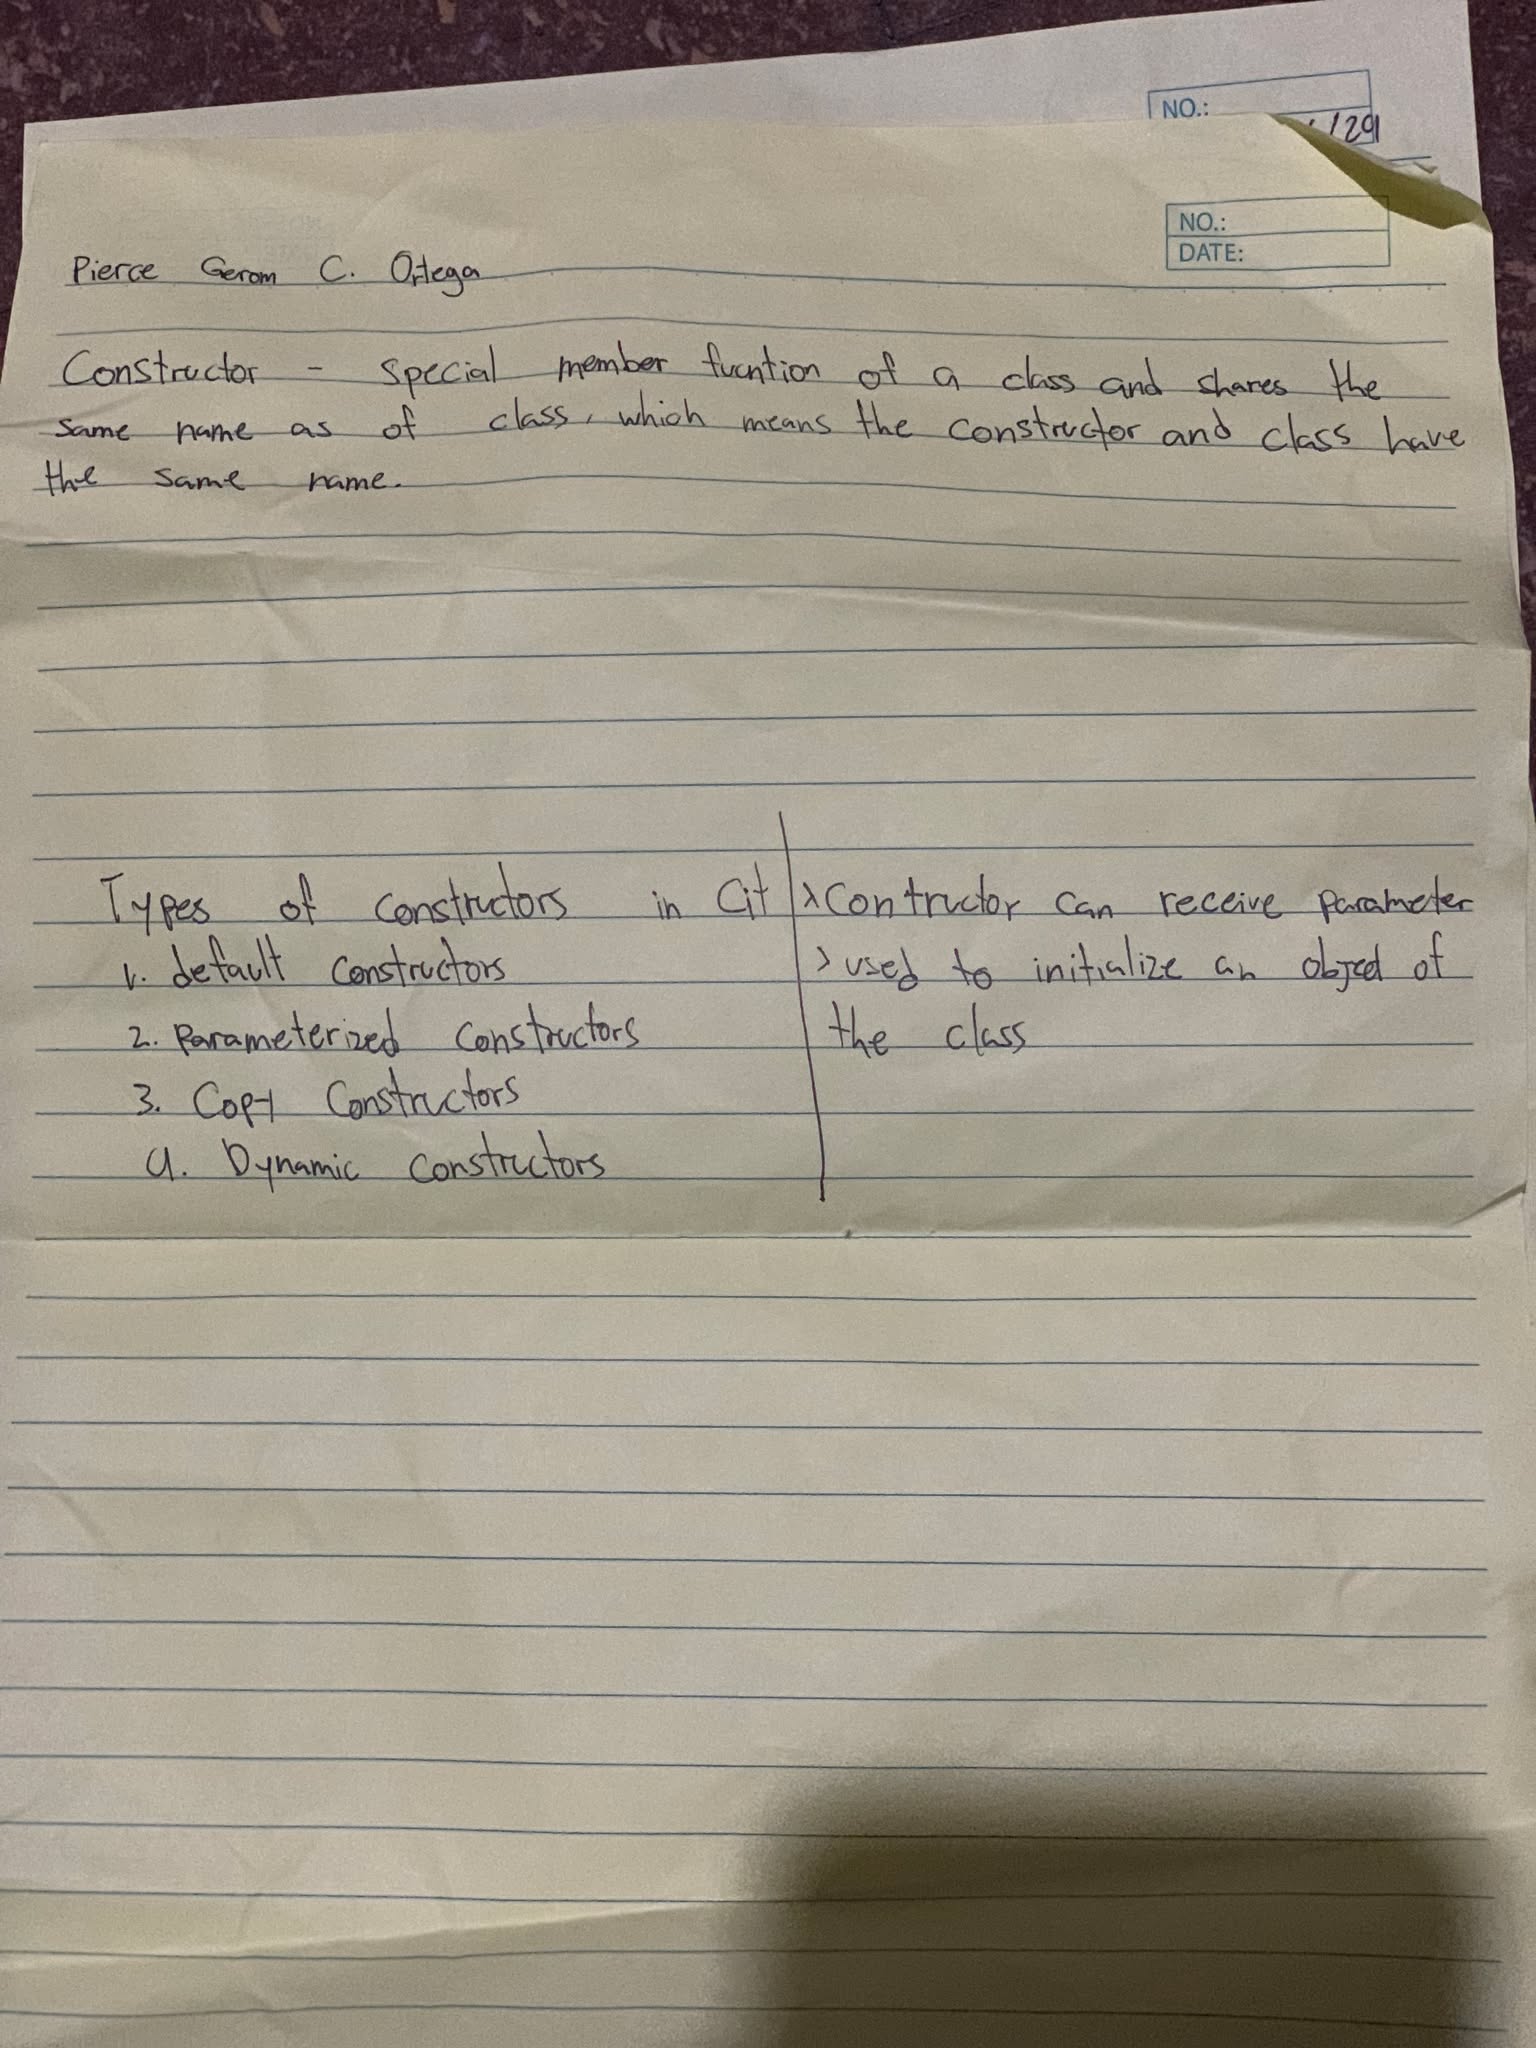 NO.:
/29
NO.:
DATE:
Pierce Gerom C. Ortega
Constructor - special member fucntion of a class and shares the
same name as of class, which means the constructor and class have
the same name.
Types of constructors in C++
1. default constructors
2. Parameterized constructors
3. Copy Constructors
4. Dynamic constructors
> Contructor can receive parameter
> used to initialize an object of
the class